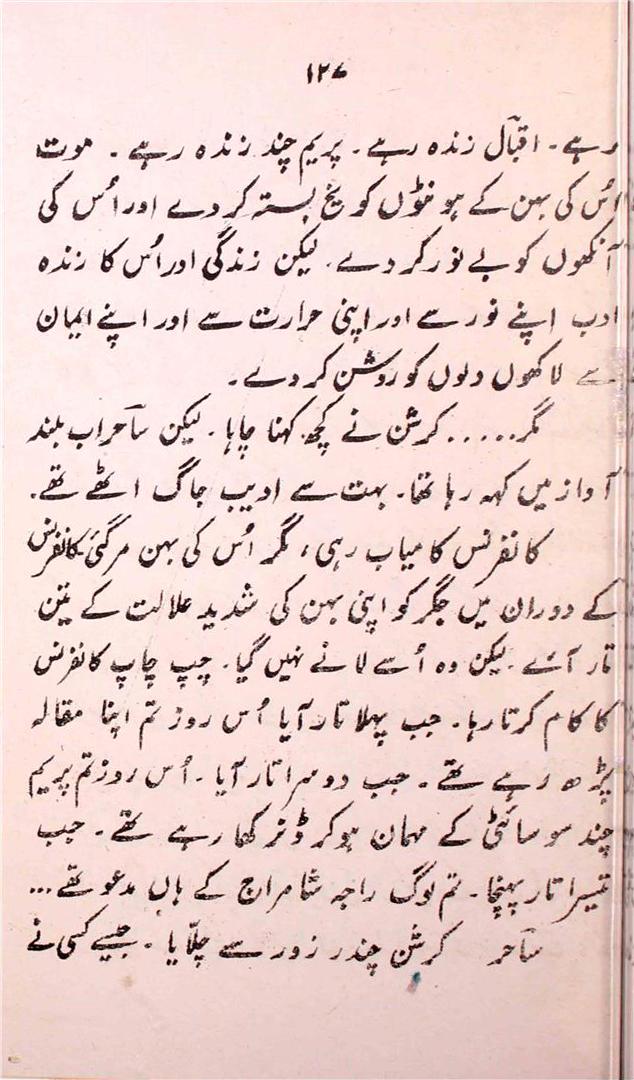 ۱۲۷
رہے۔ اقبالؔ زندہ رہے۔ پریم چند زندہ رہے۔ موت
اُس کی بہن کے ہونٹوں کو یخ بستہ کر دے اور اُس کی
آنکھوں کو بے نور کر دے۔ لیکن زندگی اور اُس کا زندہ
ادب اپنے نور سے اور اپنی حرارت سے اور اپنے ایمان
سے لاکھوں دلوں کو روشن کر دے۔
مگر..... کرشن نے کچھ کہنا چاہا۔ لیکن ساحرؔ اب بلند
آواز میں کہہ رہا تھا۔ بہت سے ادیب جاگ اٹھے تھے۔
کانفرنس کامیاب رہی، مگر اُس کی بہن مر گئی۔ کانفرنس
کے دوران میں جگر کو اپنی بہن کی شدید علالت کے تین
تار آئے۔ لیکن وہ اُسے لانے نہیں گیا۔ چپ چاپ کانفرنس
کا کام کرتا رہا۔ جب پہلا تار آیا اُس روز تم اپنا مقالہ
پڑھ رہے تھے۔ جب دوسرا تار آیا۔ اُس روز تم پریم
چند سوسائٹی کے مہمان ہو کر ڈنر کھا رہے تھے۔ جب
تیسرا تار پہنچا۔ تم لوگ راجہ شامراج کے ہاں مدعو تھے...
ساحرؔ کرشن چندر زور سے چلّایا۔ جیسے کسی نے